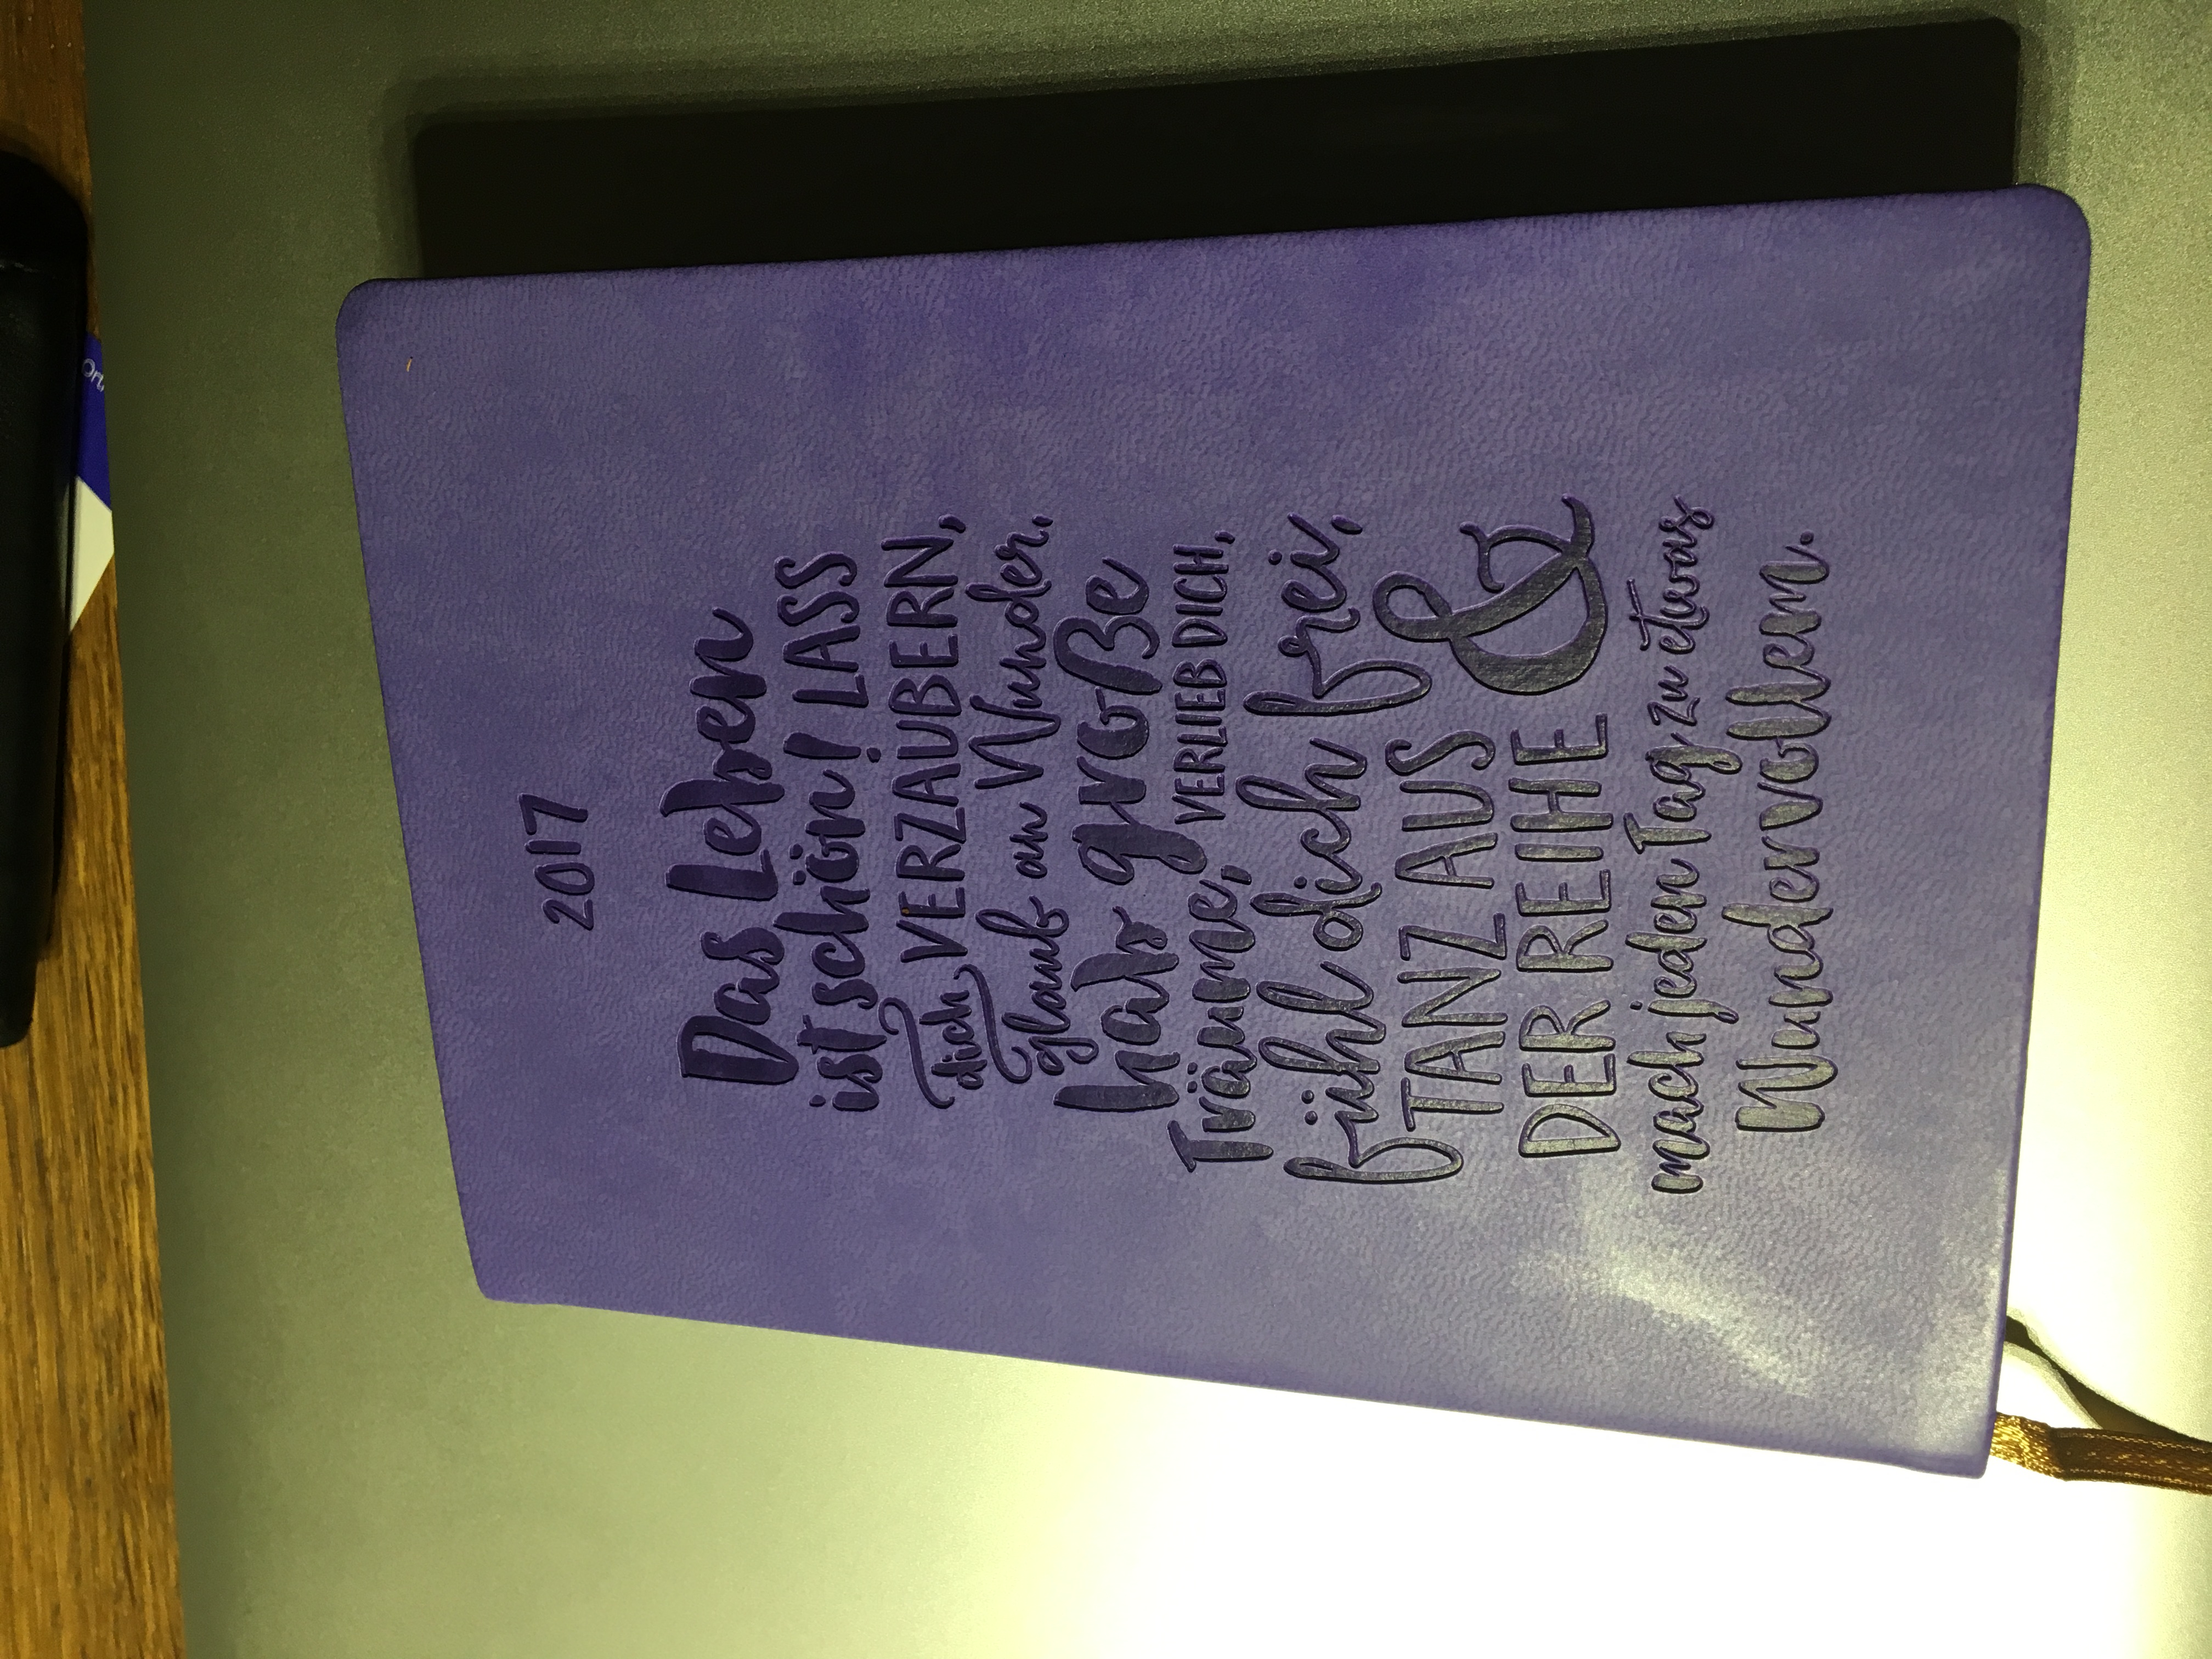 2017
Das Leben
ist schön! LASS
dich VERZAUBERN,
glaub an Wunder,
hab große
Träume, VERLIEB DICH,
fühl dich frei,
TANZ AUS
DER REIHE &
mach jeden Tag zu etwas
Wundervollem.